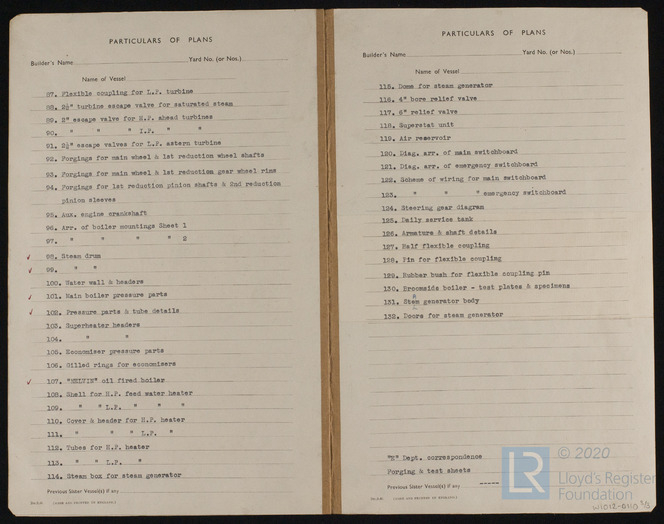 PARTICULARS OF PLANS
Builder's Name Yard No. (or Nos.)
Name of Vessel
87. Flexible coupling for L.P. turbine
88. 2½" turbine escape valve for saturated steam
89. 2" escape valve for H.P. ahead turbines
90. " " " I.P. " "
91. 2½" escape valves for L.P. astern turbine
92. Forgings for main wheel & 1st reduction wheel shafts
93. Forgings for main wheel & 1st reduction gear wheel rims
94. Forgings for 1st reduction pinion shafts & 2nd reduction
pinion sleeves
95. Aux. engine crankshaft
96. Arr. of boiler mountings Sheet 1
97. " " " " 2
98. Steam drum
99. " "
100. Water wall & headers
101. Main boiler pressure parts
102. Pressure parts & tube details
103. Superheater headers
104. " "
105. Economiser pressure parts
106. Gilled rings for economisers
107. "MELVIN" oil fired boiler
108. Shell for H.P. feed water heater
109. " " L.P. " " "
110. Cover & header for H.P. heater
111. " " " L.P. "
112. Tubes for H.P. heater
113. " " L.P. "
114. Steam box for steam generator
Previous Sister Vessel(s) if any
(MADE AND PRINTED IN ENGLAND.)
PARTICULARS OF PLANS
Builder's Name Yard No. (or Nos.)
Name of Vessel
115. Dome for steam generator
116. 4" bore relief valve
117. 6" relief valve
118. Superstat unit
119. Air reservoir
120. Diag. arr. of main switchboard
121. Diag. arr. of emergency switchboard
122. Scheme of wiring for main switchboard
123. " " " emergency switchboard
124. Steering gear diagram
125. Daily service tank
126. Armature & shaft details
127. Half flexible coupling
128. Pin for flexible coupling
129. Rubber bush for flexible coupling pin
130. Broomside boiler - test plates & specimens
131. Steam generator body
132. Doors for steam generator
"E" Dept. correspondence
Forging & test sheets
Previous Sister Vessel(s) if any
(MADE AND PRINTED IN ENGLAND.)
© 2020
LR
Lloyd's Register
Foundation
W1012-0110 3/3